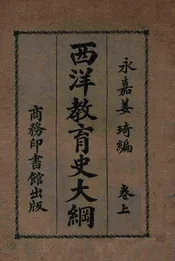 永嘉姜琦編 卷上
西洋教育史大綱
商務印書館出版